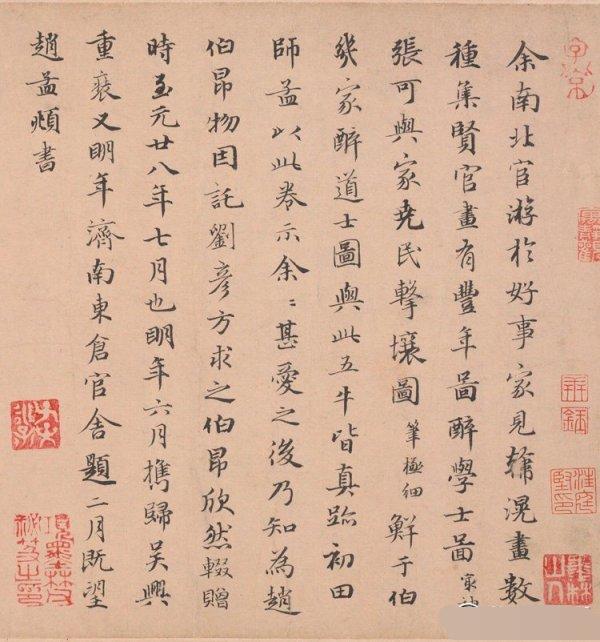 余南北官游於好事家見韓滉畫數
種集賢官畫有豐年啚醉學士啚最神
張可與家堯民擊壤圖筆極細鮮于伯
幾家醉道士圖與此五牛皆真跡初田
師孟以此卷示余〻甚愛之後乃知為趙
伯昂物因託劉彥方求之伯昂欣然輟贈
時至元廿八年七月也明年六月攜歸吳興
重裝又明年濟南東倉官舍題二月既望
趙孟頫書
子京
項墨林父祕笈之印